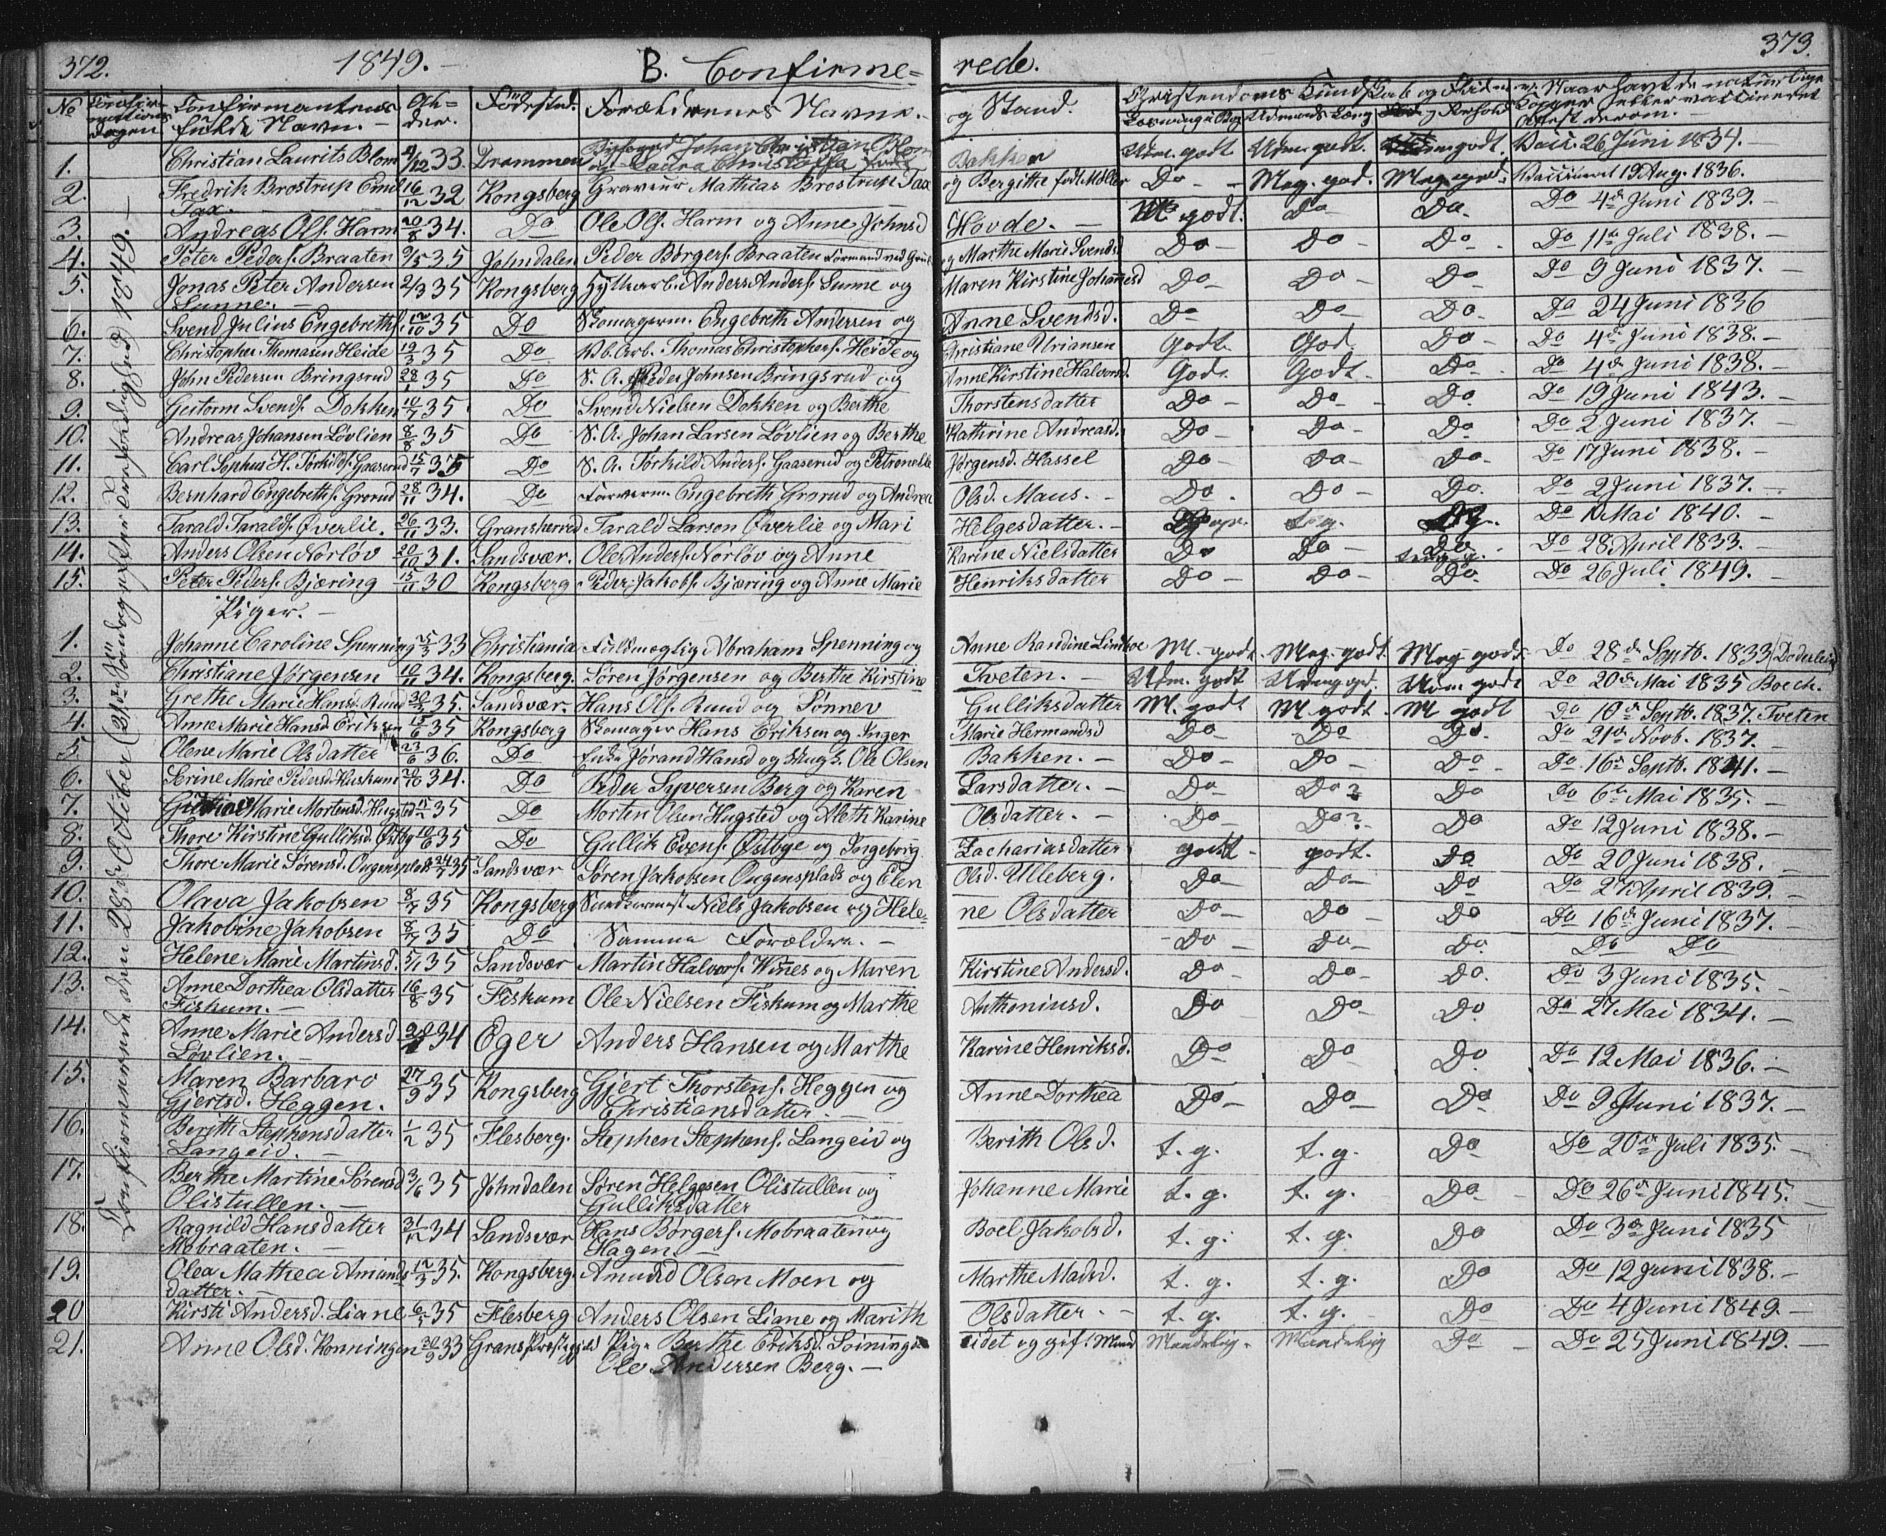 372. 1849. B. Confirme= rede. 373.
No Confirmations Dagen Confirmantens fulde Navn. Alder. Fødested. Forældrenes Navne og Stand. Christendoms Kundskab og Flid Naar havt de naturlige Kopper eller vaccineret
Confirmerede den 28de October (21de Søndag efter Trefoldighed) 1849.
1. Christian Laurits Blom 4/12 33. Drammen Johan Christian Blom Bakken Udm. godt Udm. godt. Udm. godt. Vacc. 26 Juni 1834.
2. Fredrik Brostrup Emil Fax. 16/12 32 Kongsberg Graveur Mathias Brostrup Fax og Bergithe født Møller Do Meg. god. Meg. god. Vaccineret 19 Aug. 1836.
3. Andreas Ols. Harm 20/8 34. Do Ole Ols. Harm og Anne Johnsd Hovde. M. godt. Do Do. Do 4de Juni 1839.
4. Peter Peders. Braaten 9/5 35 Johndalen Peder Børgers. Braaten og Marthe Marie Svendsd Do Do Do Do 11te Juli 1838.
5. Jonas Peter Andersen Lunne. 2/3 35 Kongsberg Hyttearb. Anders Anders. Lunne og Maren Kirstine Johannesd Do Do Do Do 9 Juni 1837.
6. Svend Julius Engebreths. 12/10 35 Do Skomagerm. Engebreth Andersen og Anne Svendsd. Do Do Do. Do 24 Juni 1836
7. Christopher Thomasen Heide 19/3 35 Do Thomas Christophers. Heide og Christiane Uriansen Godt. God. Do Do 4de Juni 1838.
8. John Pedersen Bringsrud 28/ 35 Do S. A. Peder Johnsen Bringsrud og Anne Kirstine Halvorsd. Godt. Godt. Do Do 4de Juni 1838.
9. Guttorm Svends. Dokken 10/7 35. Do Svend Nielsen Dokken og Berthe Thorstensdatter Do Do Do. Do 19 Juni 1843.
10. Andreas Johansen Løvlien 8/ 35 Do S. A. Johan Larsen Løvlien og Berthe Kathrine Andreasd. Do Do Do Do 2 Juni 1837.
11. Carl Sophus H. Torkilds. Gaaserud 15/7 35 Do S. A. Torkild Anders. Gaaserud og Petronelle Jørgensd. Hassel Do Do Do. Do 17 Juni 1838.
12. Bernhard Engebreths. Grorud 28/11 34. Do Farverm. Engebreth Grorud og Andrea Olsd. Maus. Do. Do Do. Do 2 Juni 1837.
13. Tarald Taralds. Øverlie. 26/11 33. Gransherred Tarald Larsen Øverlie og Mari Helgesdatter. t. g. Do Mai 1840.
14. Anders Olsen Nørløv 20/10 31. Sandsvær. Ole Anders. Nørløv og Anne Karine Nielsdatter Do Do Do 28 April 1833.
15. Peter Peders. Bjering 15/11 30 Kongsberg Peder Jakobs. Bjæring og Anne Marie Henriksdatter Do Do Do Do 26 Juli 1849.
Piger.
1. Johanne Caroline Spenning 25/3 33 Christiania Fuldmægtig Abraham Spenning og Anne Randine M. godt Meg. godt. Meg godt Do 28de Septb. 1833
2. Christiane Jørgensen 10/11 34. Kongsberg. Søren Jørgensen og Berthe Kirstine Tveten. Udm. godt Udm. godt Do 20de Mai 1835 Boeck.
3. Grethe Marie Hansd. Ruud 30/ 35. Sandsvær. Hans Ols. Ruud og Sønnev Gulliksdatter M. godt M. godt. M godt Do 10de Septb. 1837. Tveten
4. Anne Marie Hansd Eriksen 15/6 35 Kongsberg Skomager Hans Eriksen og Inger Marie Hermandsd Do Do Do. Do 21de Novb. 1837.
5 Olene Marie Olsdatter 23/6 36. Do Enke Jørand Hansd og Ole Olsen Bakken. Do Do Do Do 16de Septb. 1841.
6. Serine Marie Pedersd. 20/10 34. Do Peder Syversen Berg og Karen Larsdatter. Do Do Do Do 6te Mai 1835.
7. Marie Mortensd. Hugsted 17/ 35 Do Morten Olsen Hugsted og Aleth Karine Olsdatter. Do Do Do Do 12 Juni 1838.
8. Thore Kirstine Gulliksd Østbye 10/6 35 Do Gullik Evens. Østbye og Ingeborg Zachariasdatter godt. godt. Do Do 20 Juni 1838.
9. Thore Marie Sørensd. Ougensplads 24/ 35 Sandsvær Søren Jakobsen Ougensplads og Elen Olsd. Ulleberg. Do Do Do Do 27 April 1839.
10. Olava Jakobsen 8/7 35 Kongsberg Niels Jakobsen og Helene Olsdatter Do Do Do Do 16de Juni 1837.
11. Jakobine Jakobsen 8/7 35 Do Samme Forældre. Do Do Do. Do Do
12. Helene Marie Martinsd. 5/1 35 Sandsvær Martin Halvors. Wines og Maren Kirstine Andersd. Do Do Do. Do 3 Juni 1835.
13. Anne Dorthea Olsdatter Fiskum. 16/8 35 Fiskum Ole Nielsen Fiskum og Marthe Anthoniusd. Do Do Do. Do 27 Mai 1834.
14. Anne Marie Andersd Løvlien. 34 Eger Anders Hansen og Marthe Karine Henriksd. Do Do Do. Do 12 Mai 1836.
15. Maren Barbaro Gjertsd. Heggen. 27/9 35 Kongsberg Gjert Thorstens. Heggen og Anne Dorthea Christiansdatter. Do Do Do Do 9 Juni 1837.
16. Berith Stephensdatter Langeid. 1/2 35 Flesberg. Stephen Stephens. Langeid og Berith Olsd. t. g. t. g. Do Do 20de Juli 1835.
17. Berthe Martine Sørensd Olistullen. 3/6 35 Johndalen Søren Helgesen Olistullen og Johanne Marie Gulliksdatter t. g. t. g. Do Do 26de Juni 1845.
18. Ragnild Hansdatter Mobraaten. 31/12 34 Sandsvær Hans Børgers. Mobraaten og Boel Jakobsd. Hagen. t. g. t. g. Do Do 3de Juni 1835
19. Olea Mathea Amundsdatter. 12/3 35. Kongsberg. Amund Olsen Moen og Marthe Madsd. t. g. t. g. Do Do 12 Juni 1838.
20 Kirsti Andersd. Liane 6/5 35 Flesberg Anders Olsen Liane og Marith Olsdatter. t. g. t. g. Do Do 4 Juni 1849.
21. Anne Olsd. Konningen 30/9 33 Grans Præstegjeld Pige Berthe Eriksd. og gift Mand Ole Andersen Berg. Maadelig. Maadelig Do Do 25 Juni 1849.